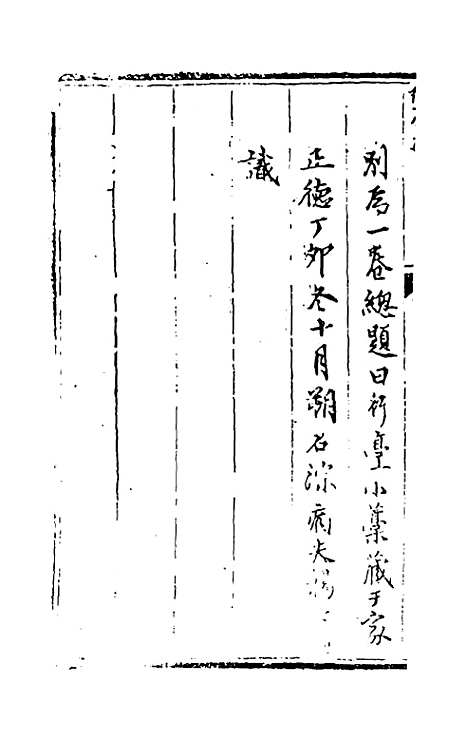 别為一卷總題曰行臺小藁藏于家
正德丁卯冬十月朔石淙病夫楊
識